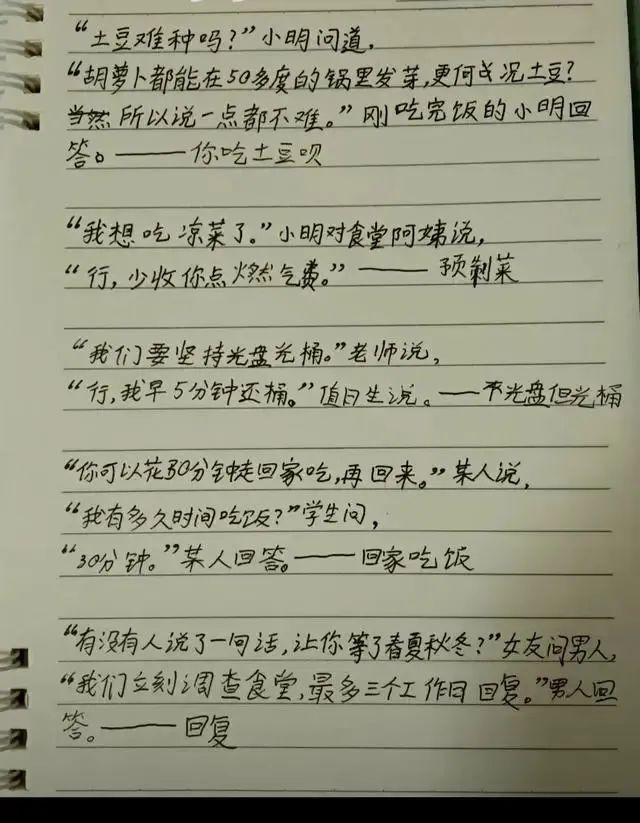 “土豆难种吗？”小明问道，
“胡萝卜都能在50多度的锅里发芽，更何况土豆？
当然 所以说一点都不难。”刚吃完饭的小明回
答。——你吃土豆呗
“我想吃凉菜了。”小明对食堂阿姨说，
“行，少收你点燃气费。”——预制菜
“我们要坚持光盘光桶。”老师说，
“行，我早5分钟还桶。”值日生说。——不光盘但光桶
“你可以花30分钟走回家吃，再回来。”某人说，
“我有多久时间吃饭？”学生问，
“30分钟。”某人回答。——回家吃饭
“有没有人说了一句话，让你等了春夏秋冬？”女友问男人，
“我们立刻调查食堂，最多三个工作日回复。”男人回
答。——回复